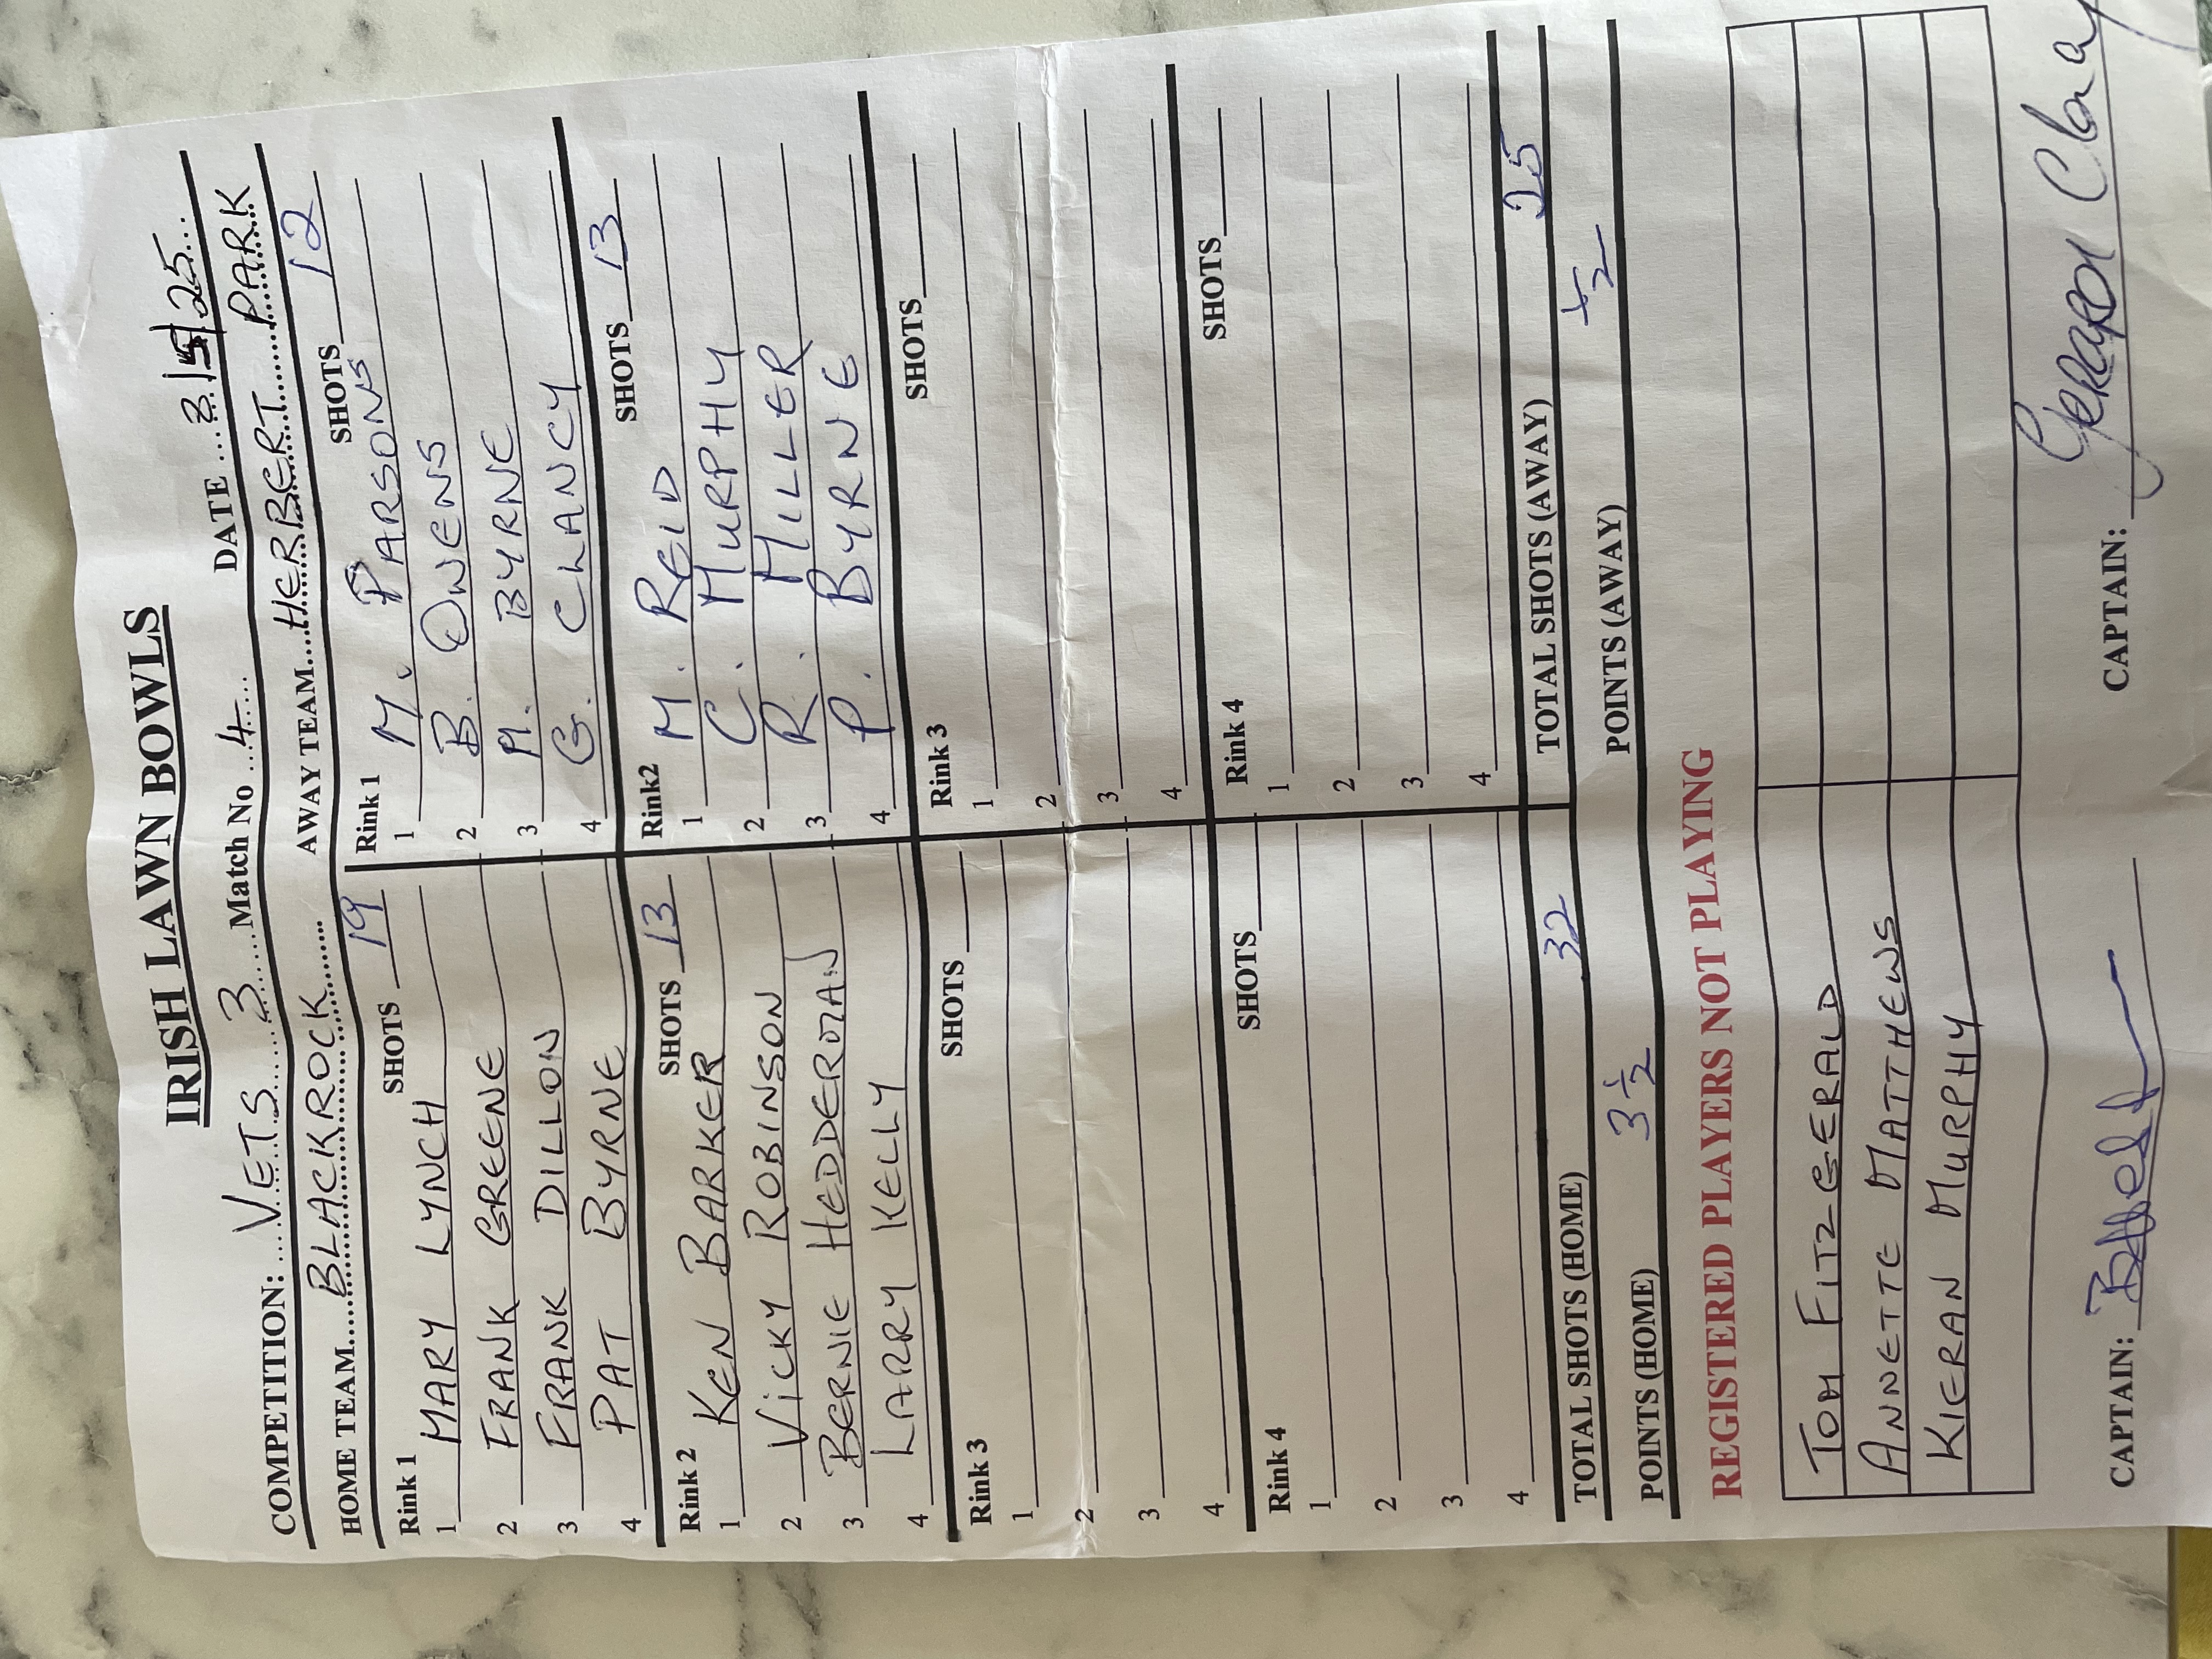 IRISH LAWN BOWLS
COMPETITION: VETS 3 Match No 4 DATE
HOME TEAM BLACKROCK AWAY TEAM HERBERT PARK
Rink 1 SHOTS 19
1 MARY LYNCH
2 FRANK GREENE
3 FRANK DILLON
4 PAT BYRNE
Rink 1 SHOTS 12
1 M. PARSONS
2 B. OWENS
3 M. BYRNE
4 G. CLANCY
Rink 2 SHOTS 13
1 KEN BARKER
2 VICKY ROBINSON
3 BERNIE HEDDERMAN
4 LARRY KELLY
Rink2 SHOTS 13
1 M. REID
2 C. MURPHY
3 R. MILLER
4 P. BYRNE
Rink 3 SHOTS
1
2
3
4
Rink 3 SHOTS
1
2
3
4
Rink 4 SHOTS
1
2
3
4
Rink 4 SHOTS
1
2
3
4
TOTAL SHOTS (HOME) 32 TOTAL SHOTS (AWAY) 25
POINTS (HOME) 3 1/2 POINTS (AWAY) 1/2
REGISTERED PLAYERS NOT PLAYING
TOM FITZGERALD
ANNETTE MATTHEWS
KIERAN MURPHY
CAPTAIN: CAPTAIN: